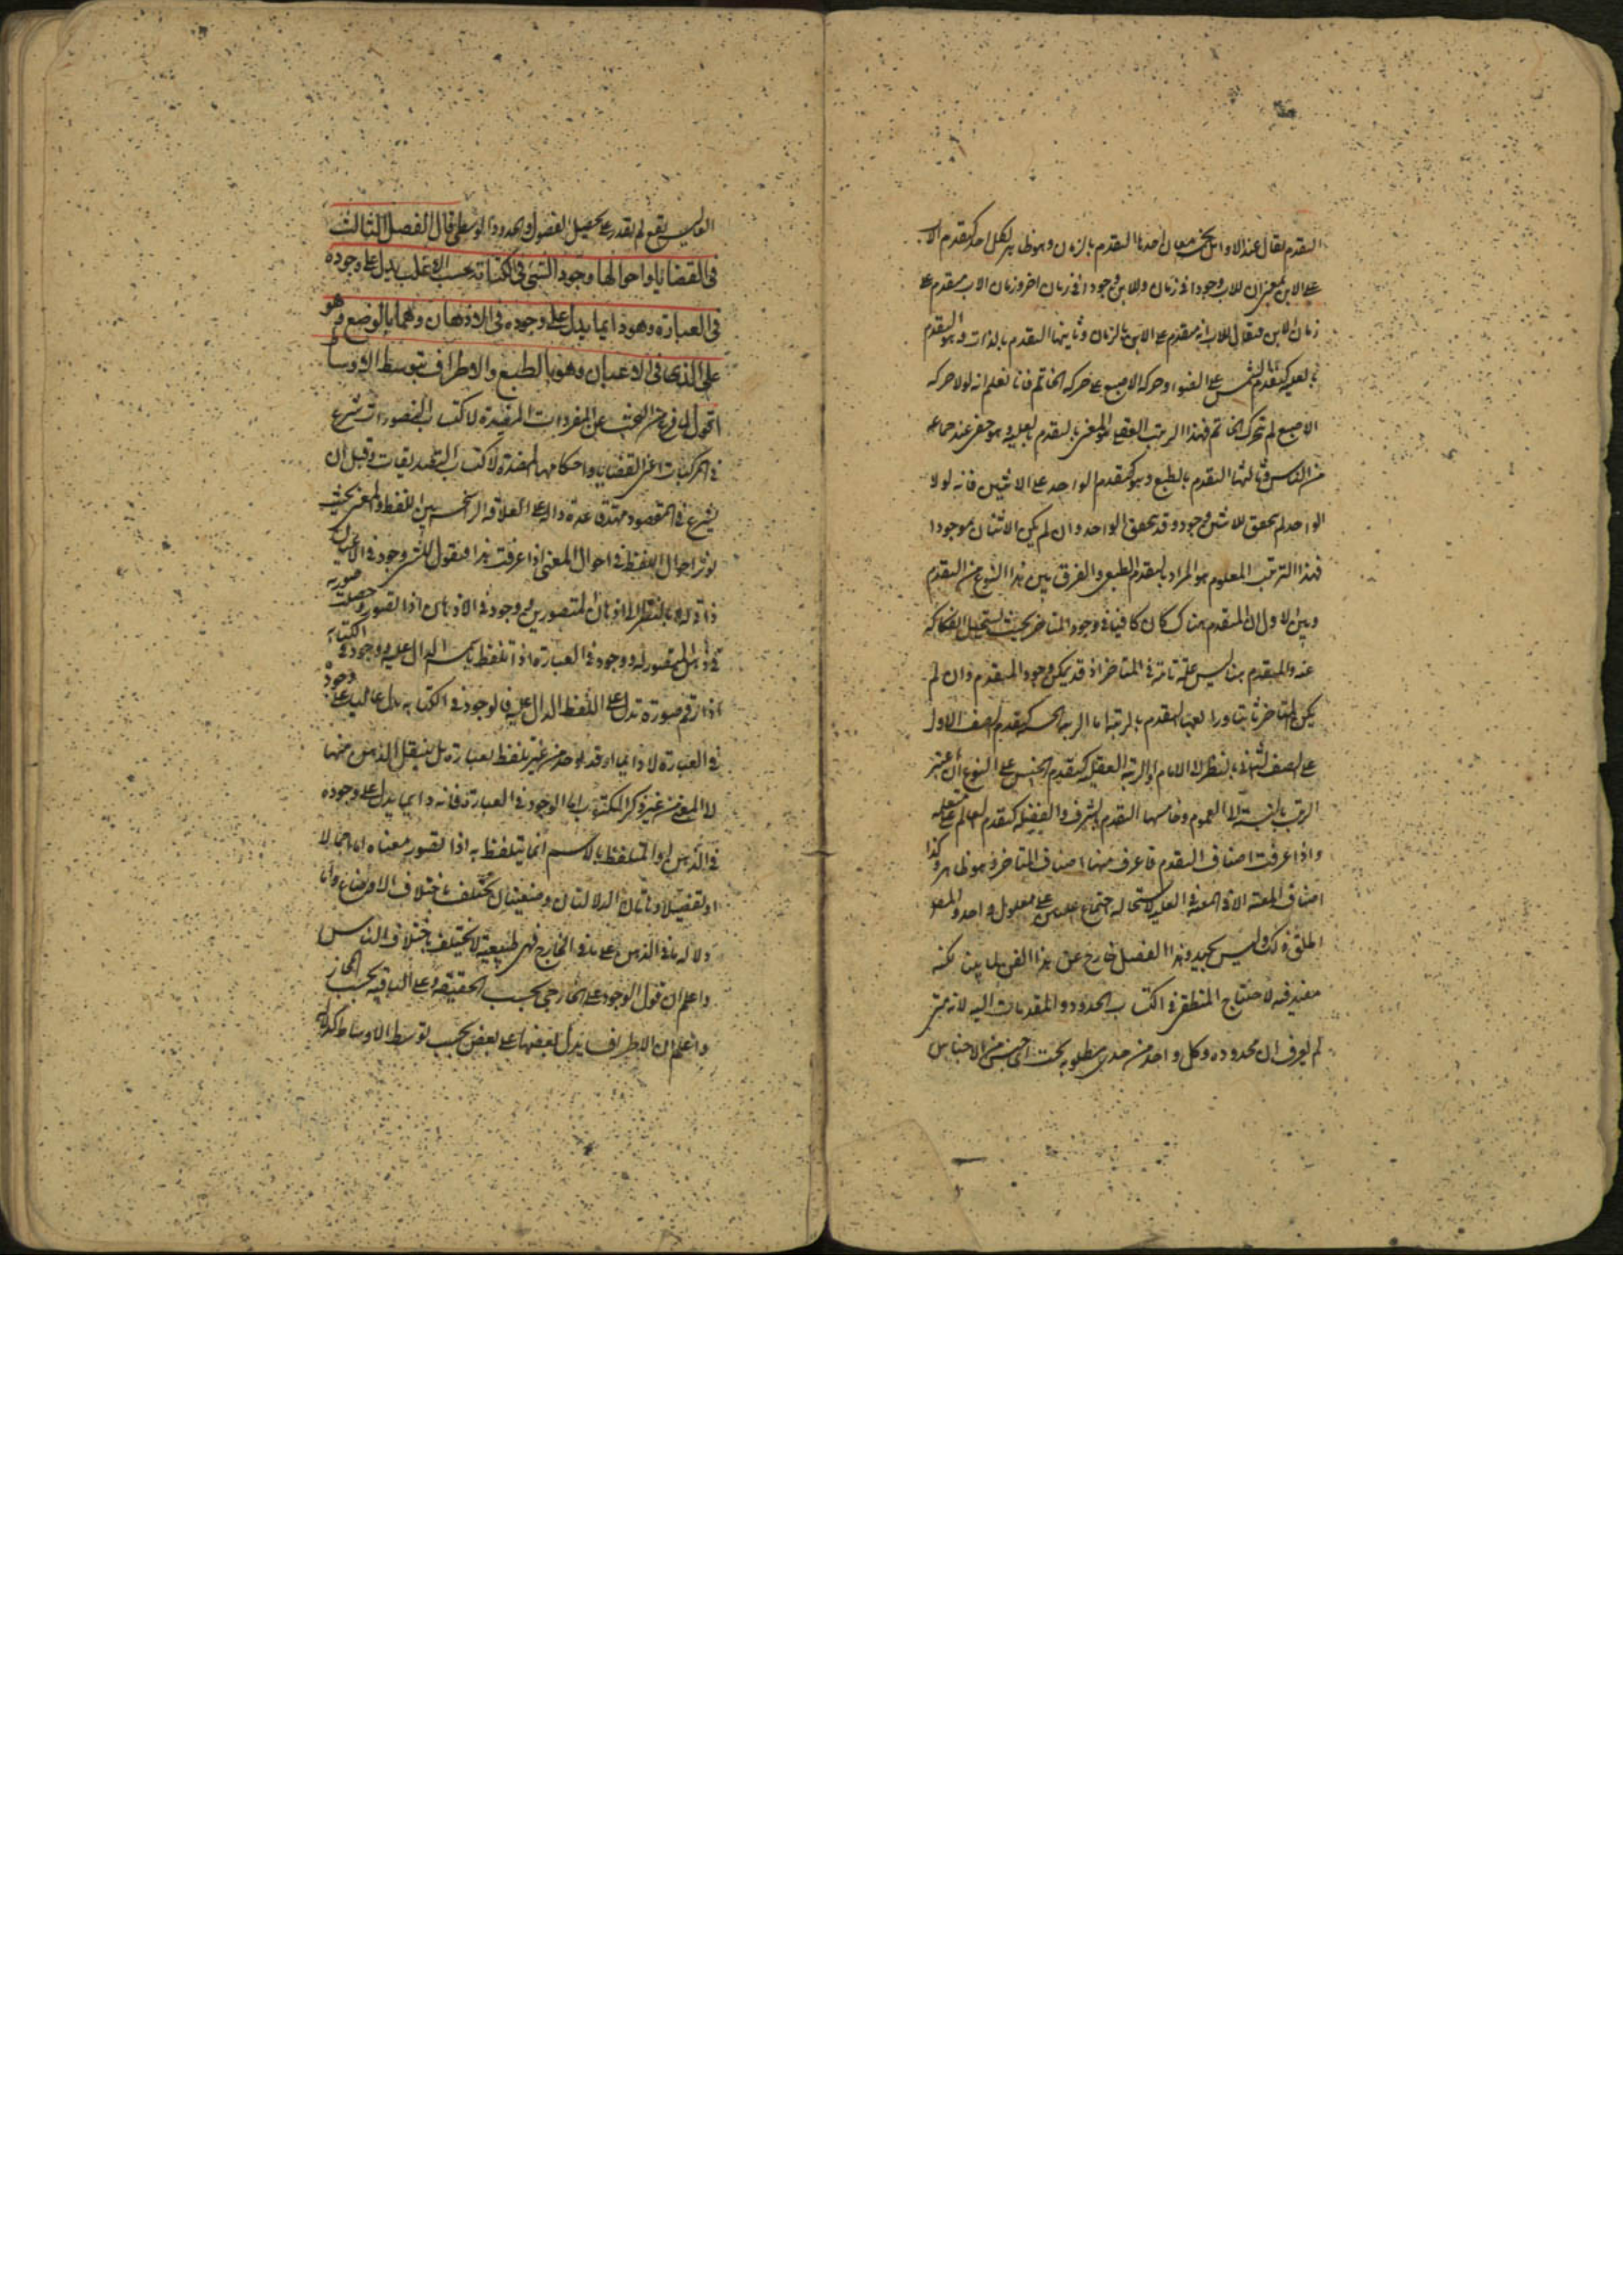 التقدم يقال عند الاوائل بخمسة معان احدها التقدم بالزمان وهو ظاهر لكل احد كتقدم الاب
على الابن بمعنى ان للاب وجودا فى زمان وللابن وجودا فى زمان اخر وزمان الاب متقدم على
زمان الابن فيقال للاب انه متقدم على الابن بالزمان وثانيها التقدم بالذات وهو التقدم
بالعلية كتقدم الشمس على الضوء وحركة الاصبع على حركة الخاتم فانا نعلم انه لولا حركة
الاصبع لم تتحرك الخاتم فهذا الترتيب العقلى هو المعنى بالتقدم بالعلية وهو عند جماعة
من الناس وثالثها التقدم بالطبع وهو كتقدم الواحد على الاثنين فانه لولا
الواحد لم يتحقق للاثنين وجود وقد يتحقق الواحد وان لم يكن الاثنان موجودا
فهذا الترتيب المعلوم هو المراد بالتقدم الطبيعى والفرق بين هذا النوع من التقدم
وبين الاول ان المتقدم هناك كان كافيا فى وجود المتاخر بحيث يستحيل انفكاكه
عنه والمتقدم هنا ليس علة تامة فى المتاخر اذ قد يمكن وجود المتقدم وان لم
يكن المتاخر ثابتا ورابعها التقدم بالرتبة اما الرتبة الحسية كتقدم الصف الاول
على الصف الثانى بالنظر الى الامام او الرتبة العقلية كتقدم الجنس على النوع ان اعتبر
الترتب بالنسبة الى العموم وخامسها التقدم بالشرف والفضيلة كتقدم العالم على متعلمه
واذا عرفت اصناف التقدم فاعرف منها اصناف المتاخر وهو ظاهر وكذا
اصناف المعية الا فى المعية فى العلية لاستحالة اجتماع علتين على معلول واحد
كذلك وليس بجيد وهذا الفصل خارج عن هذا الفن
مفيد فيه لاحتياج المنطقى فى اكتساب الحدود والمقدمات اليه لانه متى
لم يعرف ان محدوده وكل واحد من حدى مطلوبه تحت اى جنس من الاجناس
العالية يقع لم يقدر على تحصيل الفصول والحدود الوسطى قال الفصل الثالث
فى القضايا واحوالها وجود الشئ فى الكتابة بحسب الاغلب يدل على وجوده
فى العبارة وهو دايما يدل على وجوده فى الاذهان وهما بالوضع وهو
على الذى فى الاعيان وهو بالطبع والاطراف بتوسط الاوساط
اقول لما فرغ من البحث عن المفردات المفيدة لاكتساب التصورات شرع
فى المركبات اعنى القضايا واحكامها المفيدة لاكتساب التصديقات وقبل ان
يشرع فى المقصود مهد قاعدة دالة على العلاقة الراسخة بين اللفظ والمعنى بحيث
يؤثر احوال اللفظ فى احوال المعنى اذا عرفت هذا فنقول للشئ وجود فى الاعيان
ذاته وبالنظر الى اذهان المتصورين وجود فى الاذهان اذا تصور وحصلت صورته
فى ذهن المتصور له ووجود فى العبارة اذا تلفظ باسمه الدال عليه ووجود فى الكتابة
اذا رقم صورة تدل على اللفظ الدال عليه فالوجود فى الكتابة يدل غالبا على وجود
فى العبارة لا دايما اذ قد يوجد من غير تلفظ بعبارة بل ينتقل الذهن منها
الى المعنى من غير ذكر المكتوب اما الوجود فى العبارة فانه دايما يدل على وجوده
فى الذهن اذ المتلفظ بالاسم انما يتلفظ به اذا تصور معناه اما اجمالا
او تفصيلا وهاتان الدلالتان وضعيتان تختلف باختلاف الاوضاع واما
دلالة ما فى الذهن على ما فى الخارج فهى طبيعية لا يختلف باختلاف الناس
واعلم ان قول الوجود على الخارجى بحسب الحقيقة وعلى الباقية بحسب المجاز
واعلم ان الاطراف يدل بعضها على بعض بحسب توسط الاوساط